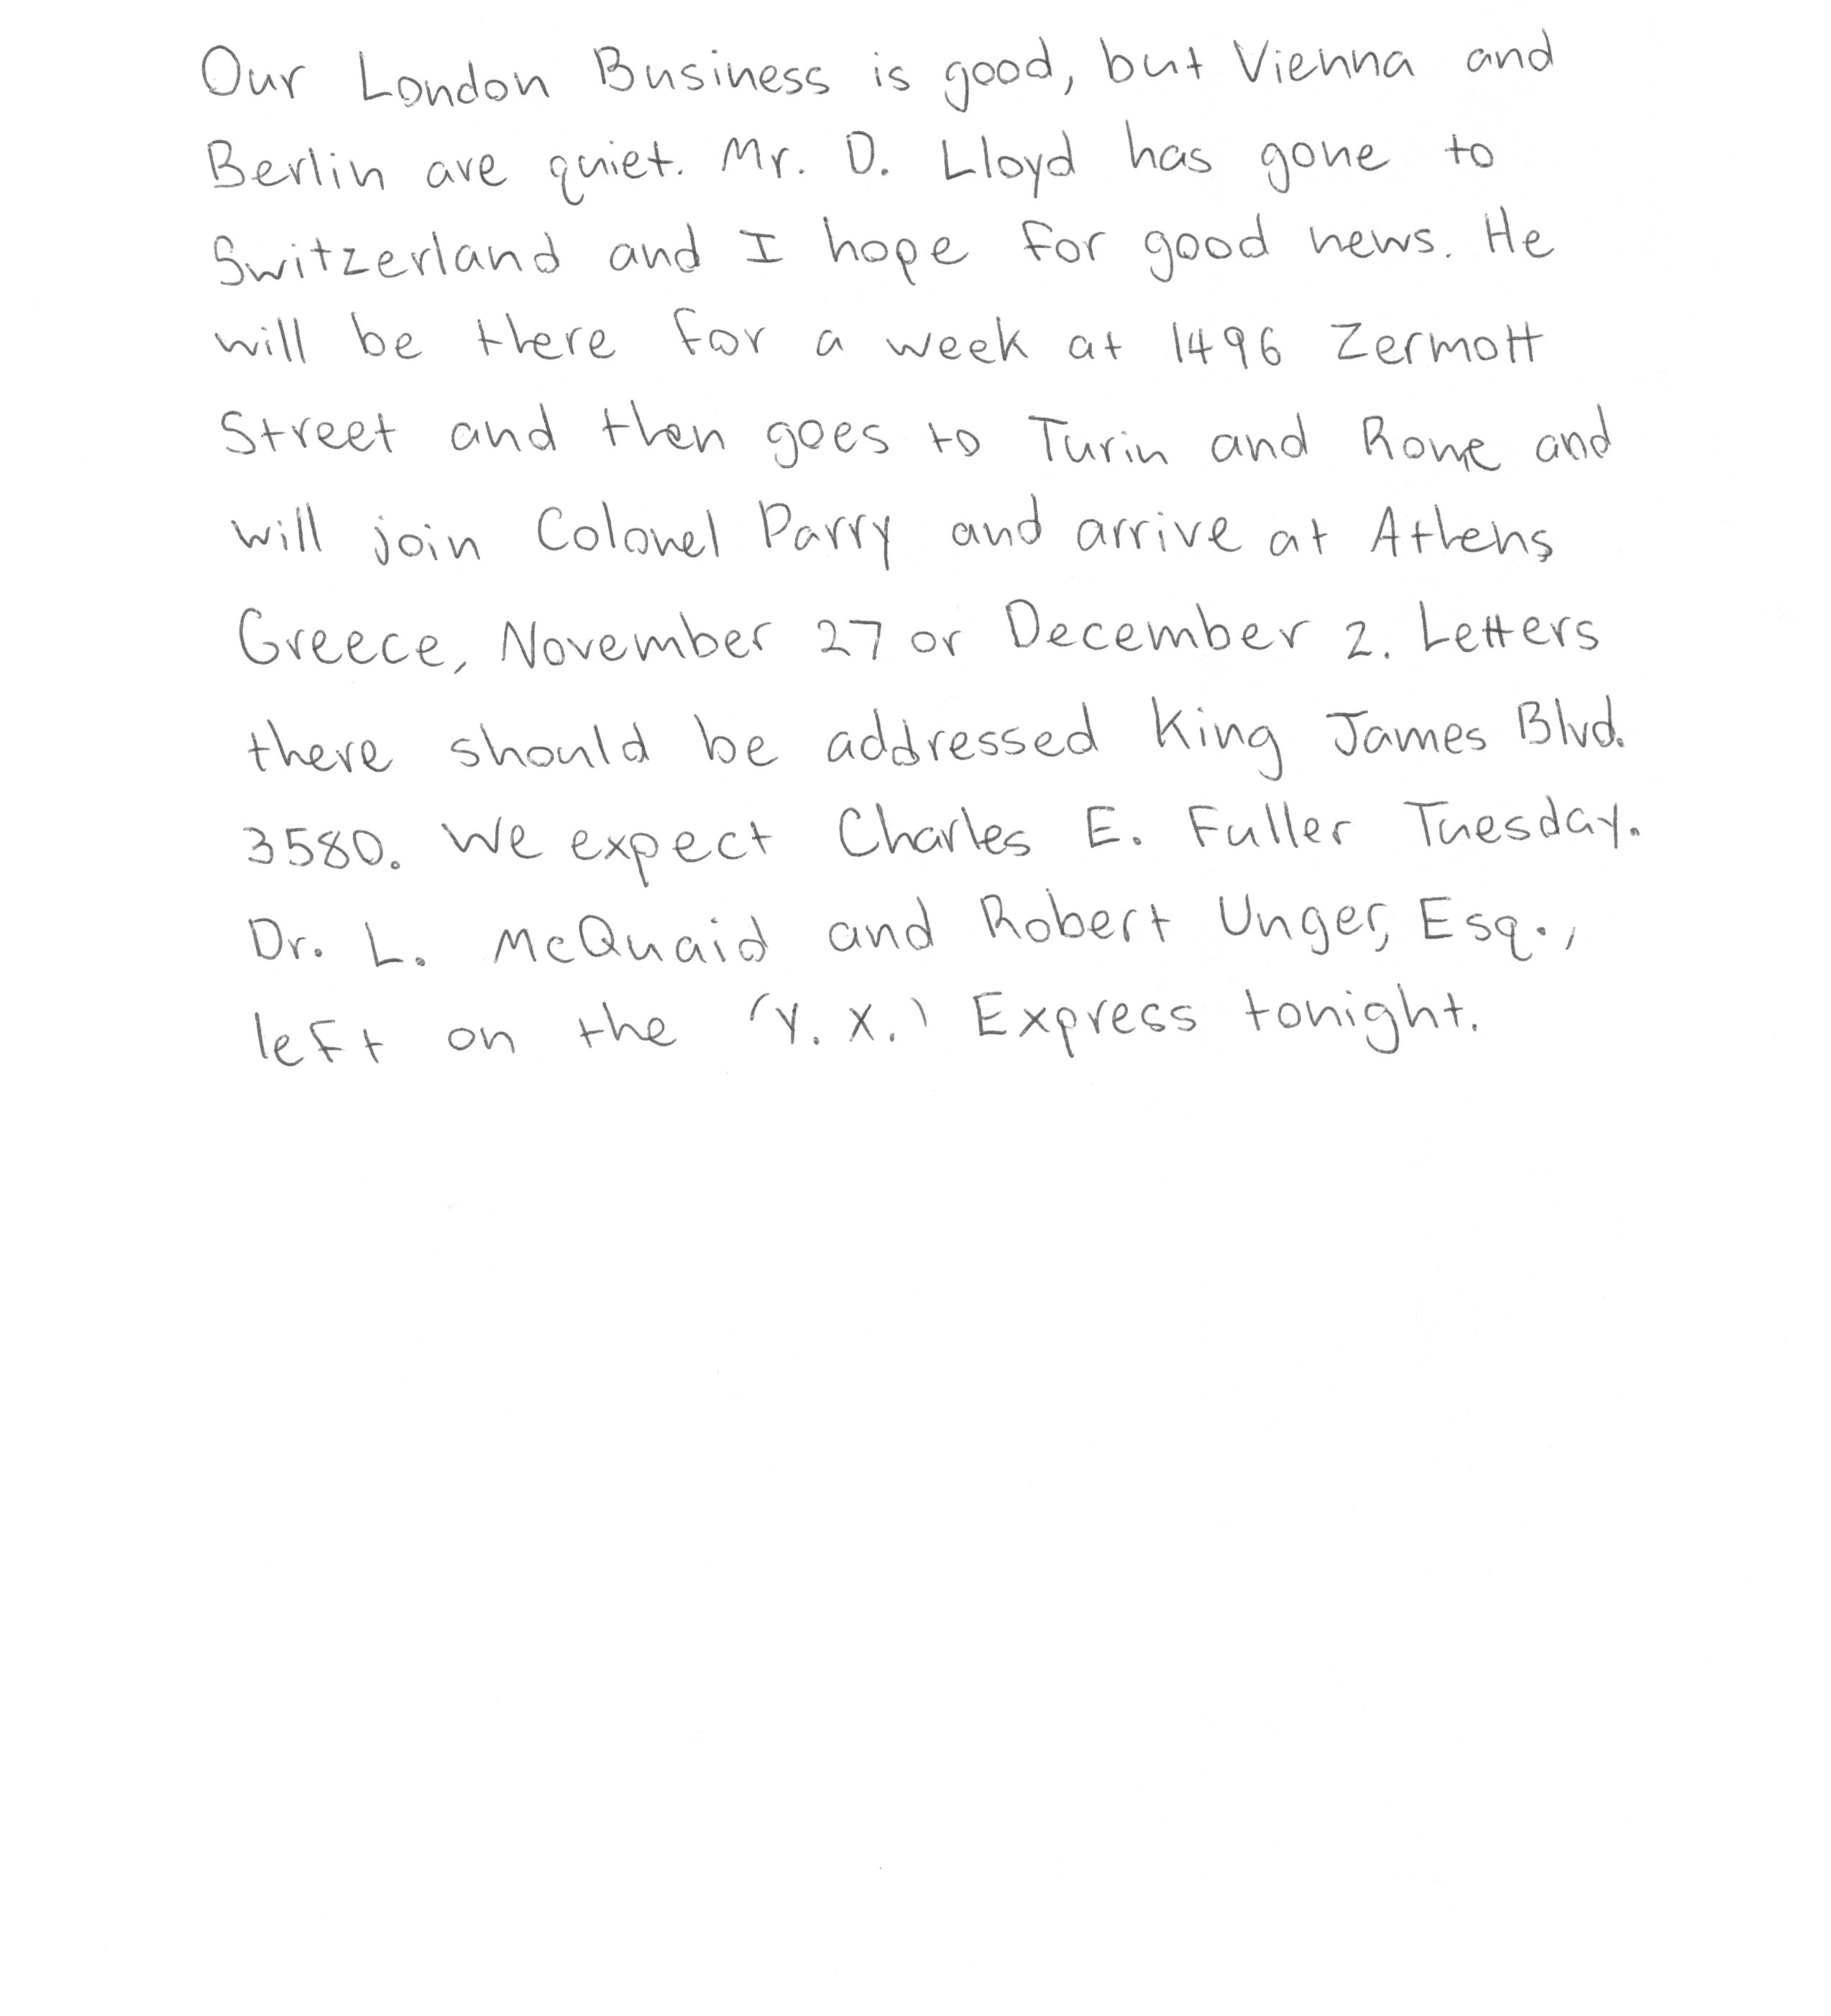 Our London Business is good, but Vienna and
Berlin are quiet. Mr. D. Lloyd has gone to
Switzerland and I hope for good news. He
will be there for a week at 1496 Zermott
Street and then goes to Turin and Rome and
will join Colonel Parry and arrive at Athens,
Greece, November 27 or December 2. Letters
there should be addressed King James Blvd.
3580. We expect Charles E. Fuller Tuesday.
Dr. L. McQuaid and Robert Unger, Esq.,
left on the (Y. X.) Express tonight.